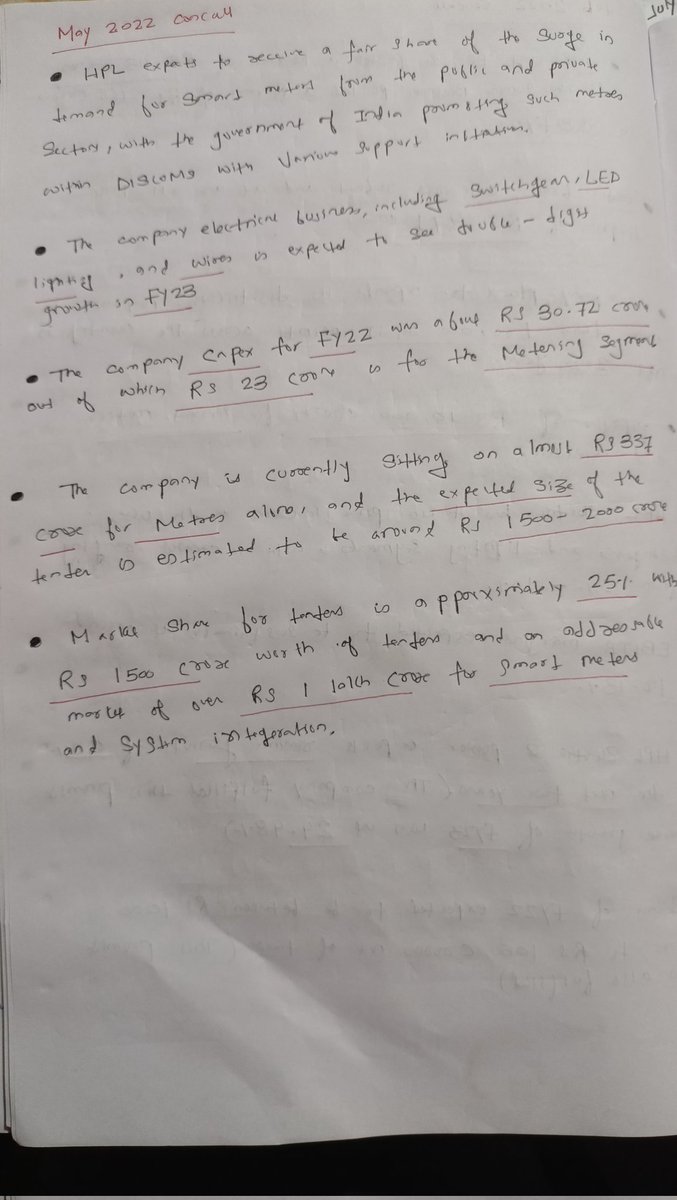 May 2022 Concall
JUN
• HPL expects to receive a fair share of the surge in
demand for smart meters from the public and private
Sectors, with the government of India promoting such metres
within DISCOMS with Various support initiation.
• The company electrical business, including Switchgear, LED
lighting, and wires is expected to see double-digit
growth in FY23
• The company Capex for FY22 was about RS 30.72 crore
out of which RS 23 crore is for the Metering Segment
• The company is currently sitting on almost RS 337
crore for Metres alone, and the expected size of the
tender is estimated to be around RS 1500-2000 crore
• Market Share for tenders is approximately 25% with
RS 1500 crore worth of tenders and an addressable
market of over RS 1 lakh crore for Smart meters
and System integration.